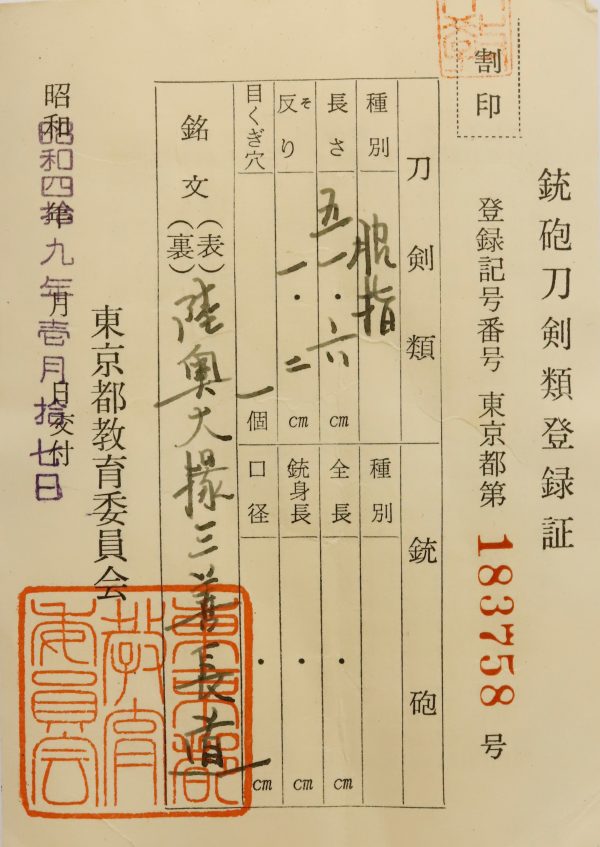 銃砲刀剣類登録証
登録記号番号 東京都第 183758 号
割印
刀剣類 銃砲
種別 脇指 種別
長さ 五一・六 cm 全長 ・ cm
反り そ 一・二 cm 銃身長 ・ cm
目くぎ穴 一 個 口径 ・ cm
銘文 (表) 陸奥大掾三善長道
(裏)
東京都教育委員会
昭和 年 月 日交付
昭和四拾九年壱月拾七日
東京都
教育
委員会